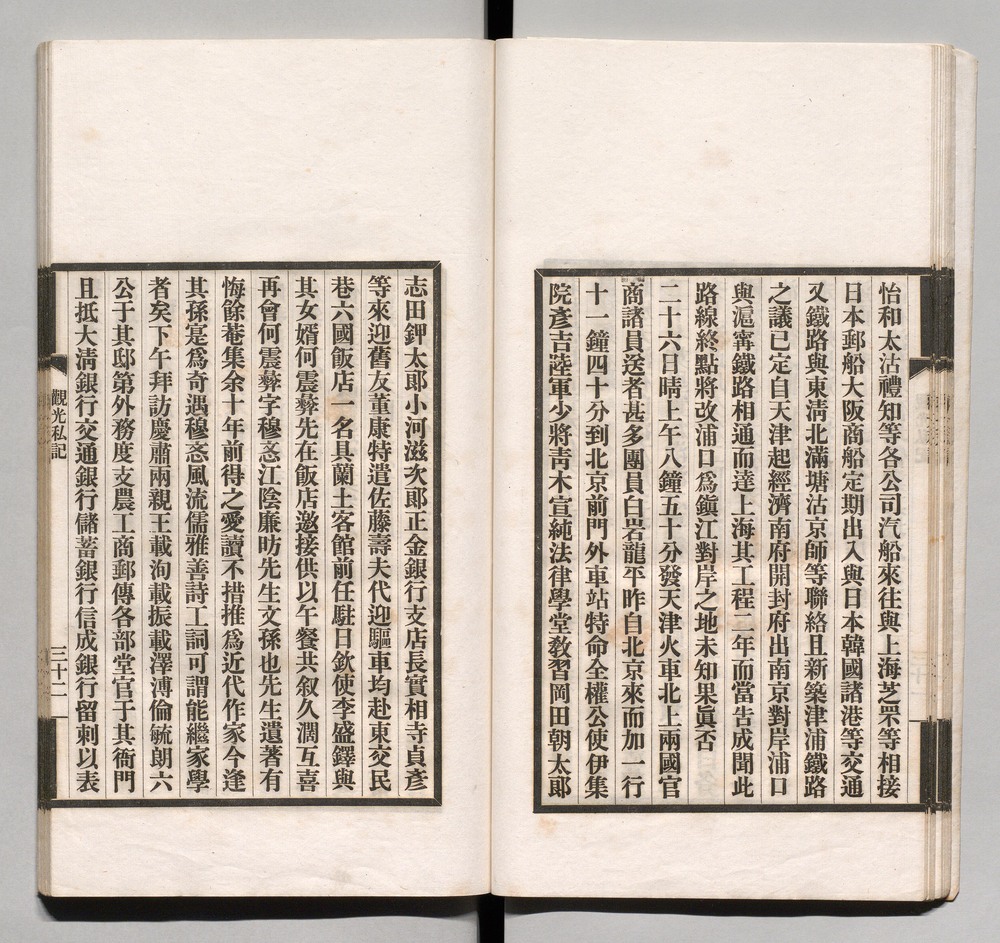 怡和太沽禮知等各公司汽船來往與上海芝罘等相接
日本郵船大阪商船定期出入與日本韓國諸港等交通
又鐵路與東淸北滿塘沽京師等聯絡且新築津浦鐵路
之議已定自天津起經濟南府開封府出南京對岸浦口
與滬甯鐵路相通而達上海其工程二年而當吿成聞此
路線終點將改浦口爲鎭江對岸之地未知果眞否
二十六日晴上午八鐘五十分發天津火車北上兩國官
商諸員送者甚多團員白岩龍平昨自北京來而加一行
十一鐘四十分到北京前門外車站特命全權公使伊集
院彥吉陸軍少將靑木宣純法律學堂敎習岡田朝太郞
志田鉀太郞小河滋次郞正金銀行支店長實相寺貞彥
等來迎舊友董康特遣佐藤壽夫代迎驅車均赴東交民
巷六國飯店一名具蘭土客館前任駐日欽使李盛鐸與
其女婿何震彝先在飯店邀接供以午餐共叙久濶互喜
再會何震彝字穆忞江陰廉昉先生文孫也先生遺著有
悔餘菴集余十年前得之愛讀不措推爲近代作家今逢
其孫寔爲奇遇穆忞風流儒雅善詩工詞可謂能繼家學
者矣下午拜訪慶肅兩親王載洵載振載澤溥倫毓朗六
公于其邸第外務度支農工商郵傳各部堂官于其衙門
且抵大淸銀行交通銀行儲蓄銀行信成銀行留刺以表
觀光私記
三十二